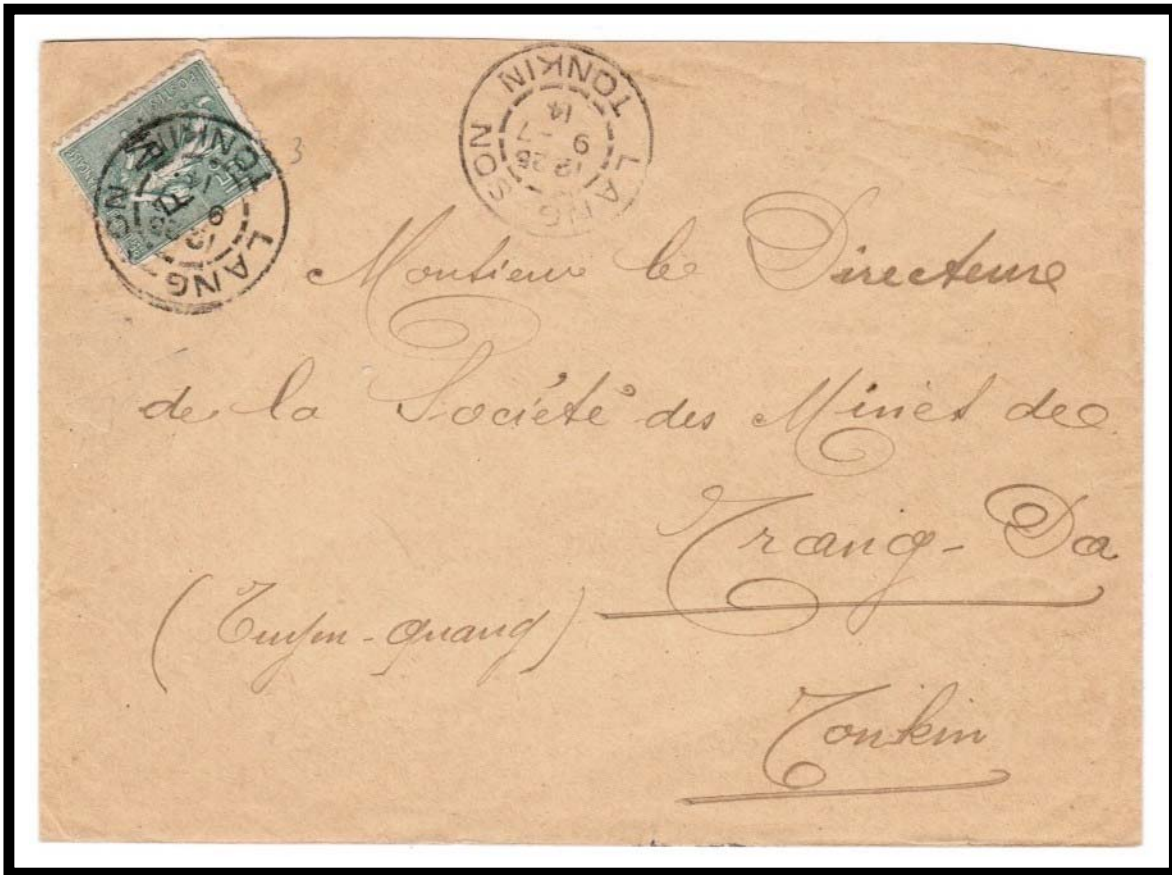 LANG SON
TONKIN
12 25
9 - 7
14
LANG SON
TONKIN
F M
3
Monsieur le Directeur
de la Société des Mines de
Trang-Da
(Tuyen-quang)
Tonkin